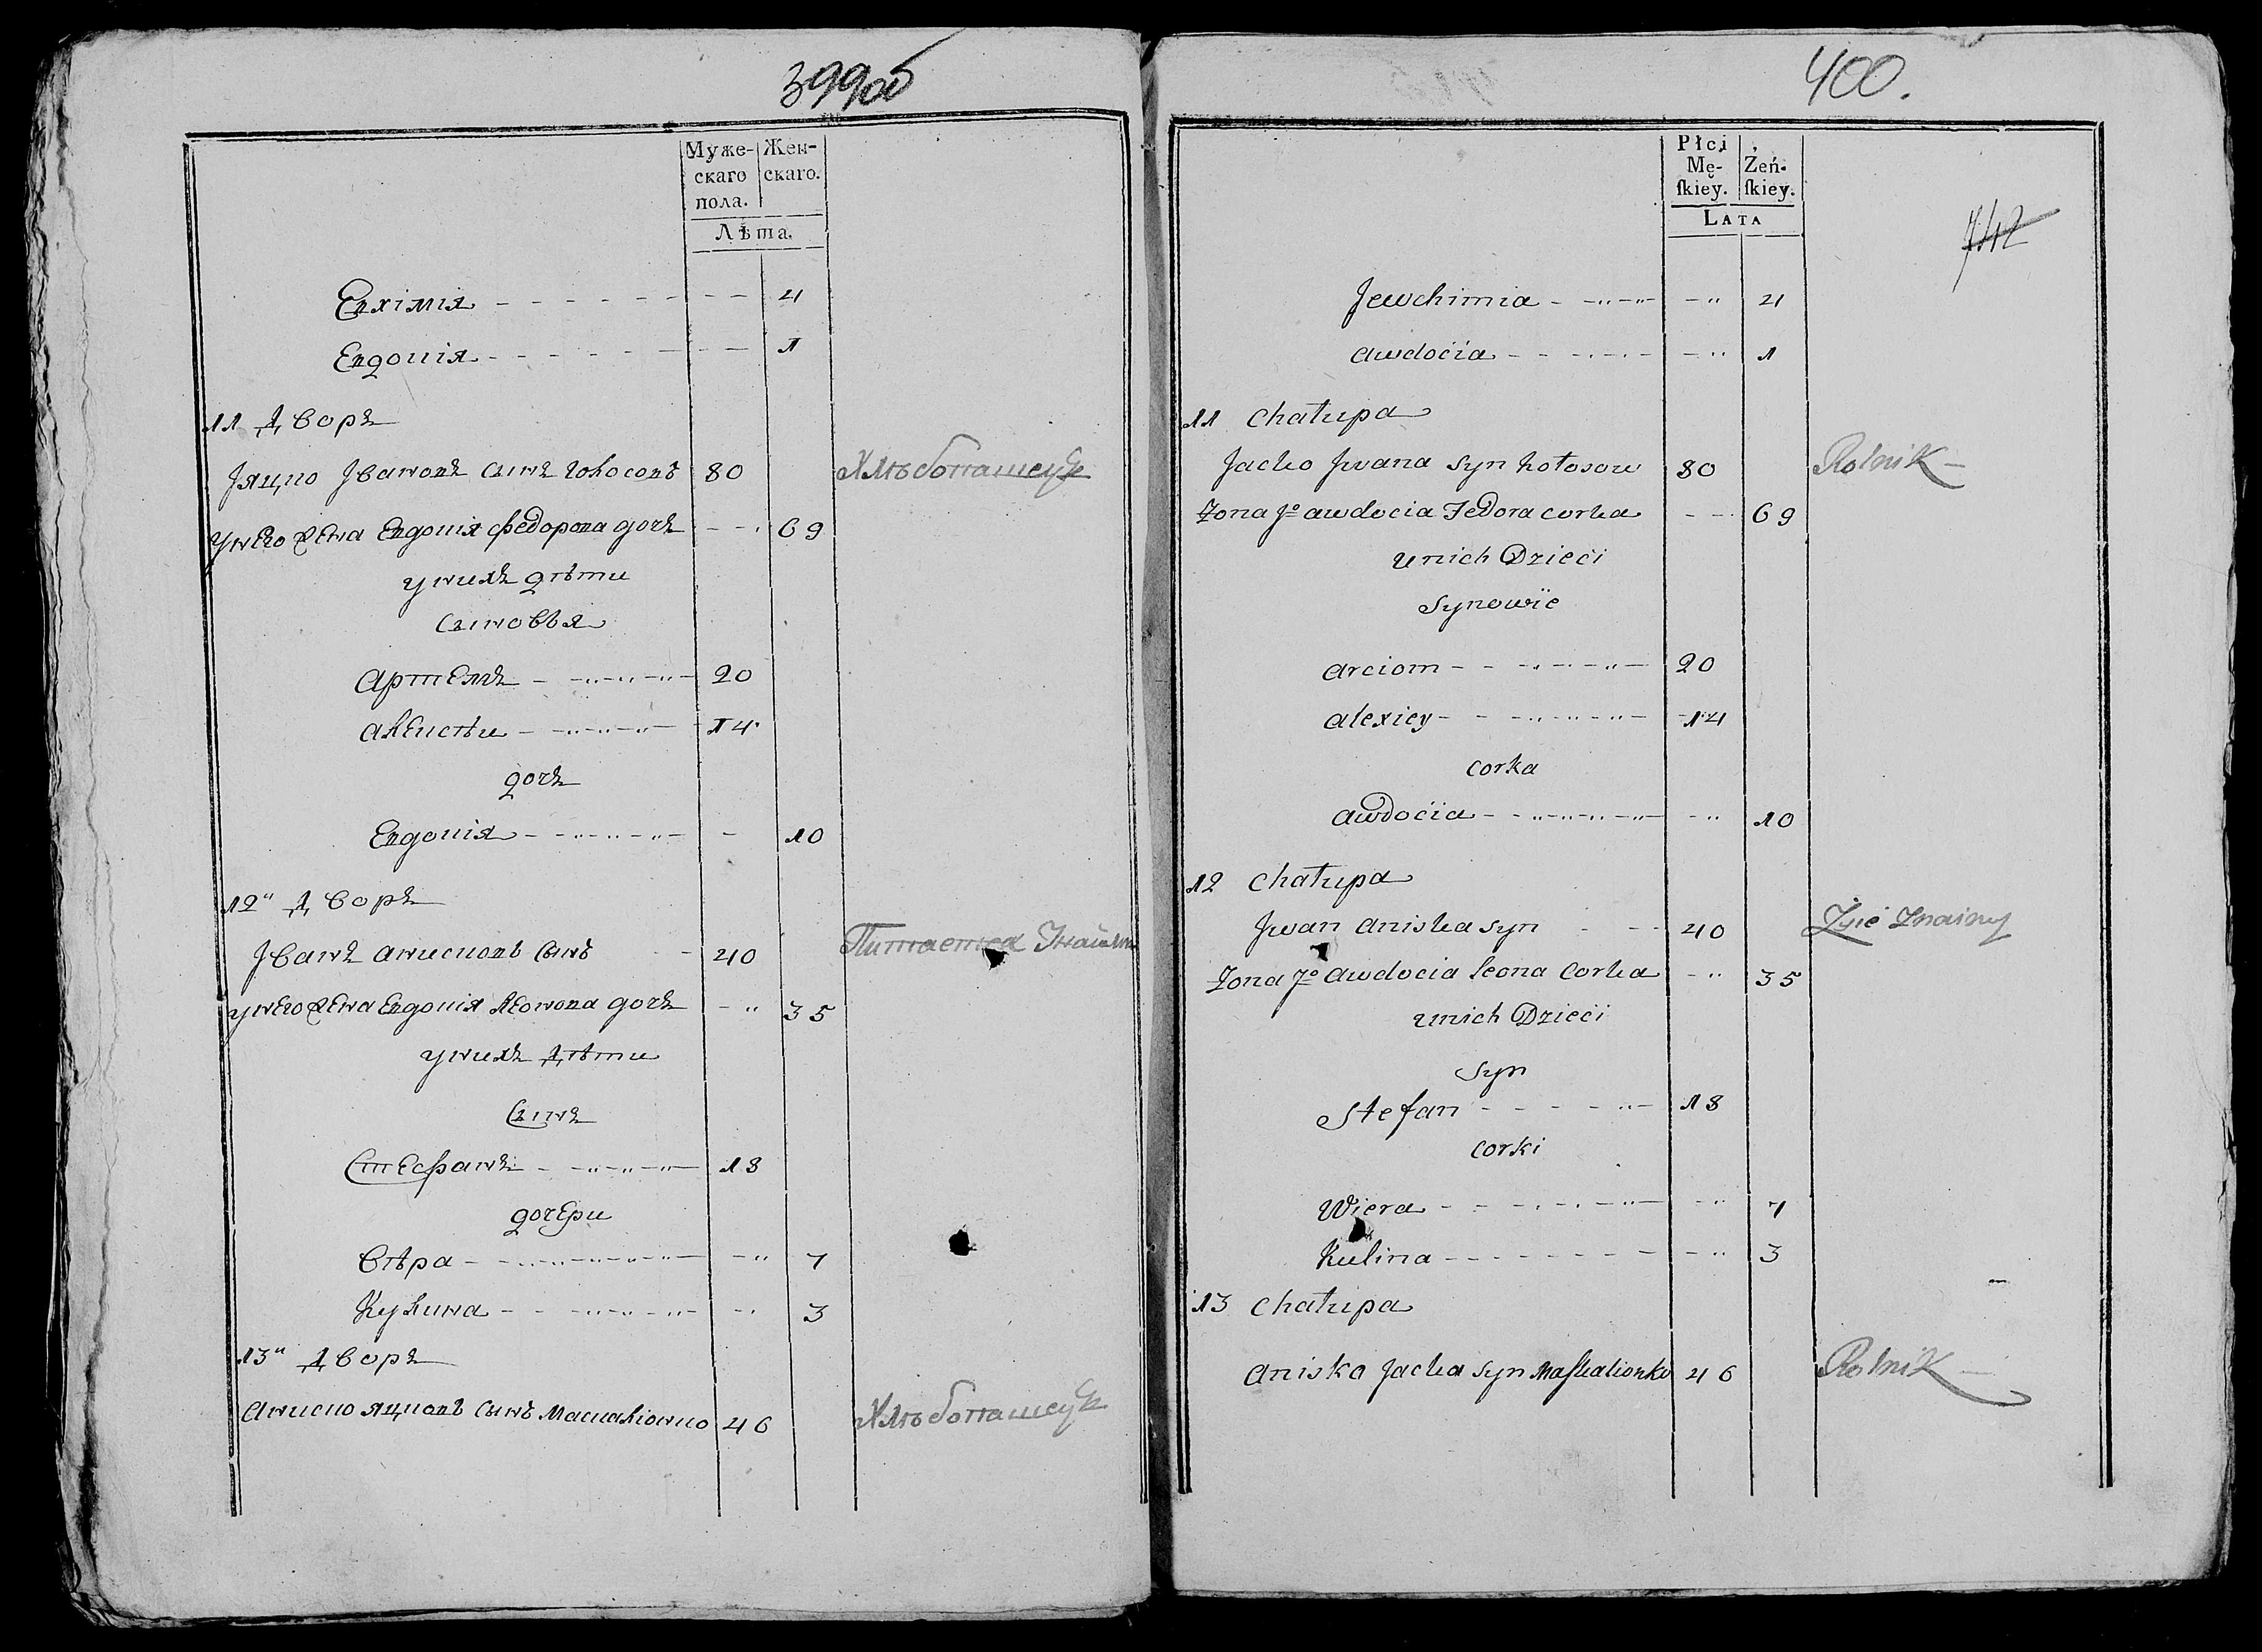 399об
Муже-
скаго
пола.
Жен-
скаго.
Лѣта.
Евхимія 4
Евдокія 1
11 Дворъ
Іяцко Івановъ сынъ Голосовъ 80 Хлѣбопашецъ
у него жена Евдокія Федорова дочь 69
у нихъ дѣти
сыновья
Артемъ 20
Алексѣи 14
дочь
Евдокія 10
12" Дворъ
Іванъ Анисковъ сынъ 40 Питается
у него жена Евдокія Леонова дочь 35
у нихъ Дѣти
сынъ
Стефанъ 18
дочери
Вѣра 7
Кулина 3
13" Дворъ
Аниско Яцковъ сынъ Маскаліонко 46 Хлѣбопашецъ
400.
Płci
Mę-
ſkiey.
Żeń-
ſkiey.
LATA
Jewchimia 4
awdocia 1
11 Chałupa
Jacko Jwana Syn hołosow 80 Rolnik
Zona Jo awdocia Fedora corka 69
unich Dzieci
Synowie
arciom 20
alexiey 14
corka
awdocia 10
12 Chałupa
Jwan aniska syn 40
Zona Jo awdocia leona Corka 35
unich Dzieci
Syn
Stefan 18
corki
Wiera 7
Kulina 3
13 Chałupa
anisko Jacka Syn Maſkalionko 46 Rolnik